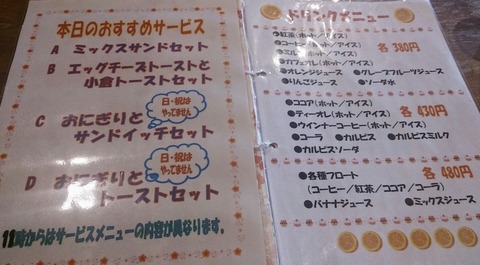 本日のおすすめサービス
A ミックスサンドセット
B エッグチーズトーストと
小倉トーストセット
日・祝は
やってません
C おにぎりと
サンドイッチセット
日・祝は
やってません
D おにぎりと
トーストセット
11時からはサービスメニューの内容が異なります。
ドリンクメニュー
●紅茶(ホット/アイス)
●コーヒー(ホット/アイス) 各380円
●ミルク(ホット/アイス)
●カフェオレ(ホット/アイス)
●オレンジジュース ●グレープフルーツジュース
●りんごジュース ●ソーダ水
●ココア(ホット/アイス) 各430円
●ティーオレ(ホット/アイス)
●ウインナーコーヒー(ホット/アイス)
●コーラ ●カルピス ●カルピスミルク
●カルピスソーダ
●各種フロート 各480円
(コーヒー/紅茶/ココア/コーラ)
●バナナジュース ●ミックスジュース